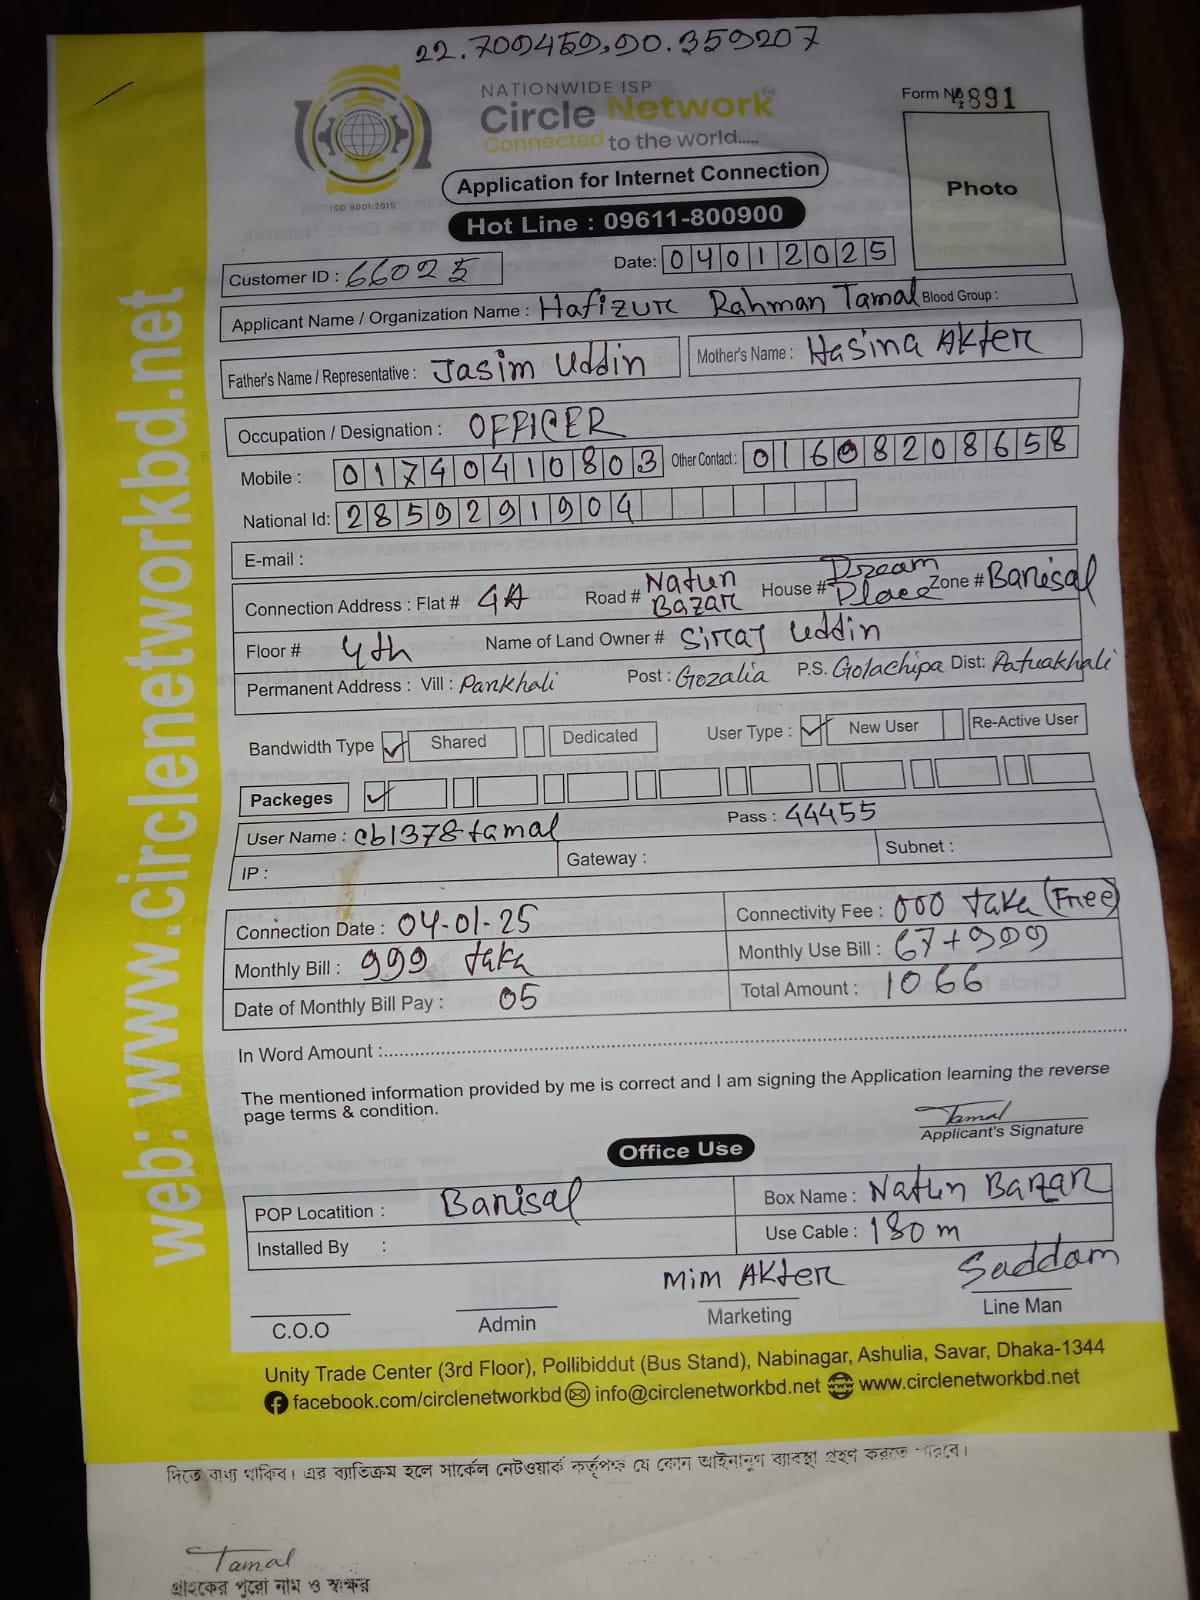 22.709459,90.359207
NATIONWIDE ISP
Circle Network
Connected to the world.....
ISO 9001:2015
Form No 4891
Photo
Application for Internet Connection
Hot Line : 09611-800900
Customer ID : 66025
Date: 04012025
Applicant Name / Organization Name : Hafizur Rahman Tamal Blood Group :
Father's Name / Representative : Jasim Uddin Mother's Name : Hasina Akter
Occupation / Designation : OFFICER
Mobile : 01740410803 Other Contact : 01608208658
National Id: 2859291904
E-mail :
Connection Address : Flat # 4A Road # Natun Bazar House # Dream Place Zone # Barisal
Floor # 4th Name of Land Owner # Siraj Uddin
Permanent Address : Vill : Pankhali Post : Gozalia P.S. Golachipa Dist: Patuakhali
Bandwidth Type ✓ Shared Dedicated User Type : ✓ New User Re-Active User
Packeges ✓
User Name : cb1378-tamal Pass : 44455
IP : Gateway : Subnet :
Connection Date : 04-01-25 Connectivity Fee : 000 taka (Free)
Monthly Bill : 999 taka Monthly Use Bill : 67+999
Date of Monthly Bill Pay : 05 Total Amount : 1066
In Word Amount :
The mentioned information provided by me is correct and I am signing the Application learning the reverse
page terms & condition.
Tamal
Applicant's Signature
Office Use
POP Locatition : Barisal Box Name : Natun Bazar
Installed By : Use Cable : 130 m
Mim Akter Saddam
C.O.O Admin Marketing Line Man
Unity Trade Center (3rd Floor), Pollibiddut (Bus Stand), Nabinagar, Ashulia, Savar, Dhaka-1344
facebook.com/circlenetworkbd info@circlenetworkbd.net www.circlenetworkbd.net
web: www.circlenetworkbd.net
দিতে বাধ্য থাকিব। এর ব্যতিক্রম হলে সার্কেল নেটওয়ার্ক কর্তৃপক্ষ যে কোন আইনানুগ ব্যবস্থা গ্রহণ করতে পারবে।
Tamal
গ্রাহকের পুরো নাম ও স্বাক্ষর